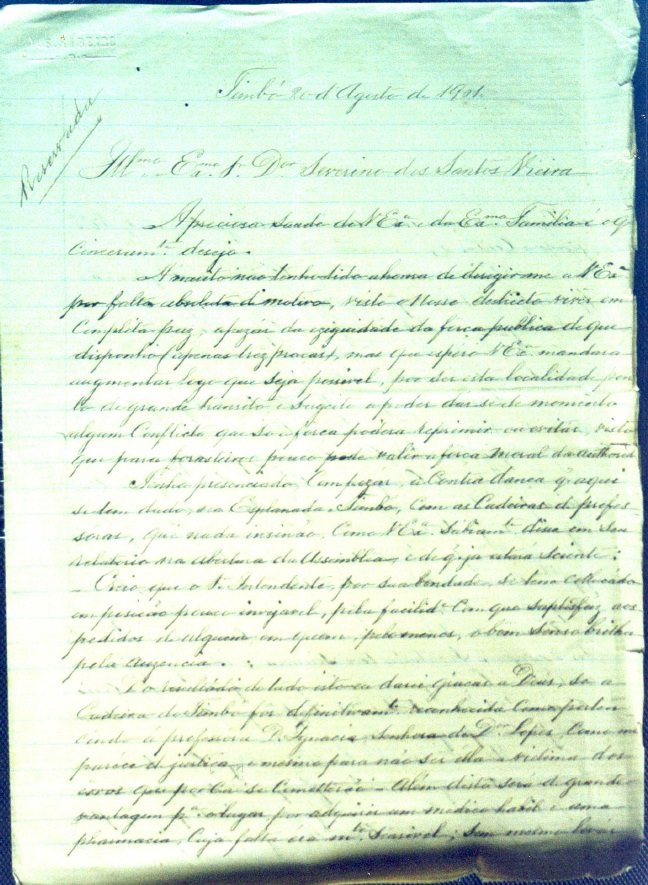 Timbó 20 d Agosto de 1901.
Reservada
Illmo Exmo Sr. Dor Severino dos Santos Vieira
A preciosa saude de V Exa e da Exma Familia é o q
cinceramte desejo.
A muito não tenho tido a honra de dirigir me a V Exa
por falta absoluta di motivo, visto o Nosso districto viver em
Completa paz, apezár da exiguidade da força publica de que
disponho (apenas trez praças), mas que espero V Exa mandará
augmentar logo que seja possivel, por ser esta localidade pon
to de grande tranzito e sugeito a poder dar-se de momento
algum Conflicto que só a força poderá reprimir ou evitar, visto
que para forasteiros pouco pode valer a força moral da authorid
Tenho presenciado Com pezar, a Contradança q. aqui
se tem dado, na Esplanada, Timbo, com as Cadeiras de profes-
soras, que nada insinão, Como V Exa. Sabiamte disse em seu
relatorio na abertura da Assemblea, e de q. já estará sciente:
- Creio que o Sr. Intendente, por sua bondade, se tem collocado
em posição pouco invejavel, pela facilide Com que satisfaz aos
pedidos de alguem em quem, pelo menos, o bom senso brilha
pela auzencia.
E o rezultado de tudo isto eu darei graças a Deus, se a
Cadeira do Timbó fôr definitivamte reconhecida Como perten
cendo á professora D. Ignacia, Senhora do Dor Lopes, Como me
parece de justiça, e mesmo para não ser ella a victima dos
erros que por Cá se Cometterão - Alem disto será de grande
vantagem pa o lugar por adquirir um medico habil e uma
pharmacia, Cuja falta éra mto sensivel; Sem mesmo